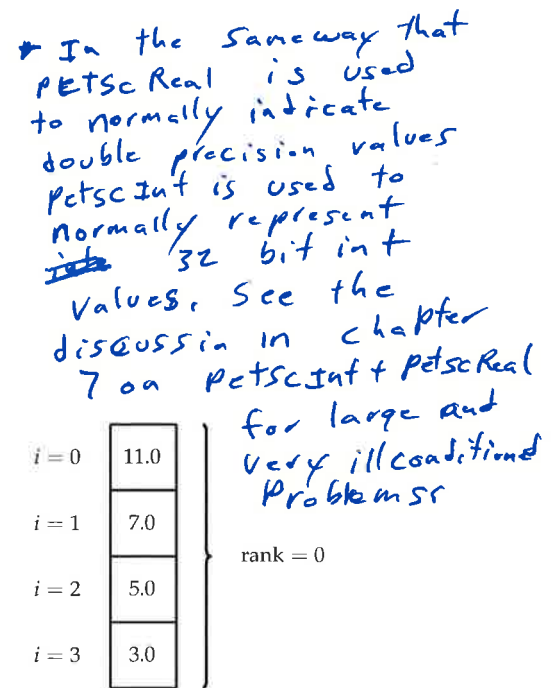 * In the same way that
PETSc Real is used
to normally indicate
double precision values
PetscInt is used to
normally represent
32 bit int
values, See the
discussin in chapter
7 on PetscInt + PetscReal
for large and
very illconditiond
Problemss
i = 0 11.0
i = 1 7.0
rank = 0
i = 2 5.0
i = 3 3.0